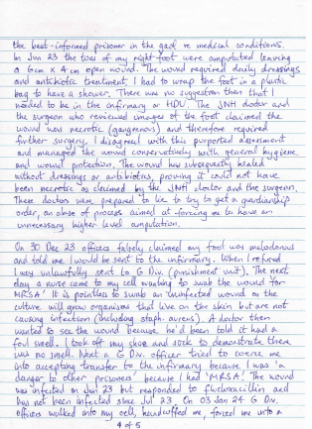 the best-informed prisoner in the gaol re medical conditions.
In Jun 23 the toes of my right foot were amputated leaving
a 6cm x 4cm open wound. The wound required daily dressings
and antibiotic treatment. I had to wrap the foot in a plastic
bag to have a shower. There was no suggestion then that I
needed to be in the infirmary or HDU. The JNH doctor and
the surgeon who reviewed images of the foot claimed the
wound was necrotic (gangrenous) and therefore required
further surgery. I disagreed with this purported assessment
and managed the wound conservatively with general hygiene
and wound protection. The wound has subsequently healed
without dressings or antibiotics, proving it could not have
been necrotic as claimed by the JNH doctor and the surgeon.
These doctors were prepared to lie to try to get a guardianship
order, an abuse of process aimed at forcing me to have an
unnecessary higher level amputation.
On 30 Dec 23 officers falsely claimed my foot was malodorous
and told me I would be sent to the infirmary. When I refused
I was unlawfully sent to G Div. (punishment unit). The next
day a nurse came to my cell wanting to swab the wound for
'MRSA'. It is pointless to swab an uninfected wound as the
culture will grow organisms that live on the skin but are not
causing infection (including staph. aureus). A doctor then
wanted to see the wound because he'd been told it had a
foul smell. I took off my shoe and sock to demonstrate there
was no smell. Next a G Div. officer tried to coerce me
into accepting transfer to the infirmary because I was 'a
danger to other prisoners' because I had 'MRSA'. The wound
was infected in Jun 23 but responded to flucloxacillin and
has not been infected since Jul 23. On 03 Jan 24 G Div.
officers walked into my cell, handcuffed me, forced me into a
4 of 5